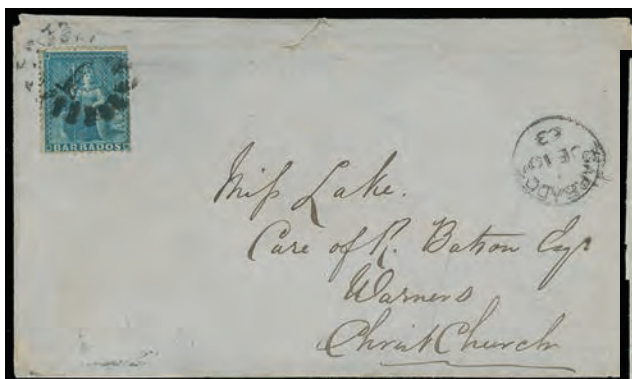 BARBADOS
BARBADO
JE 16
63
Miss Lake.
Care of R. Batson Esqr
Warners
Christ Church